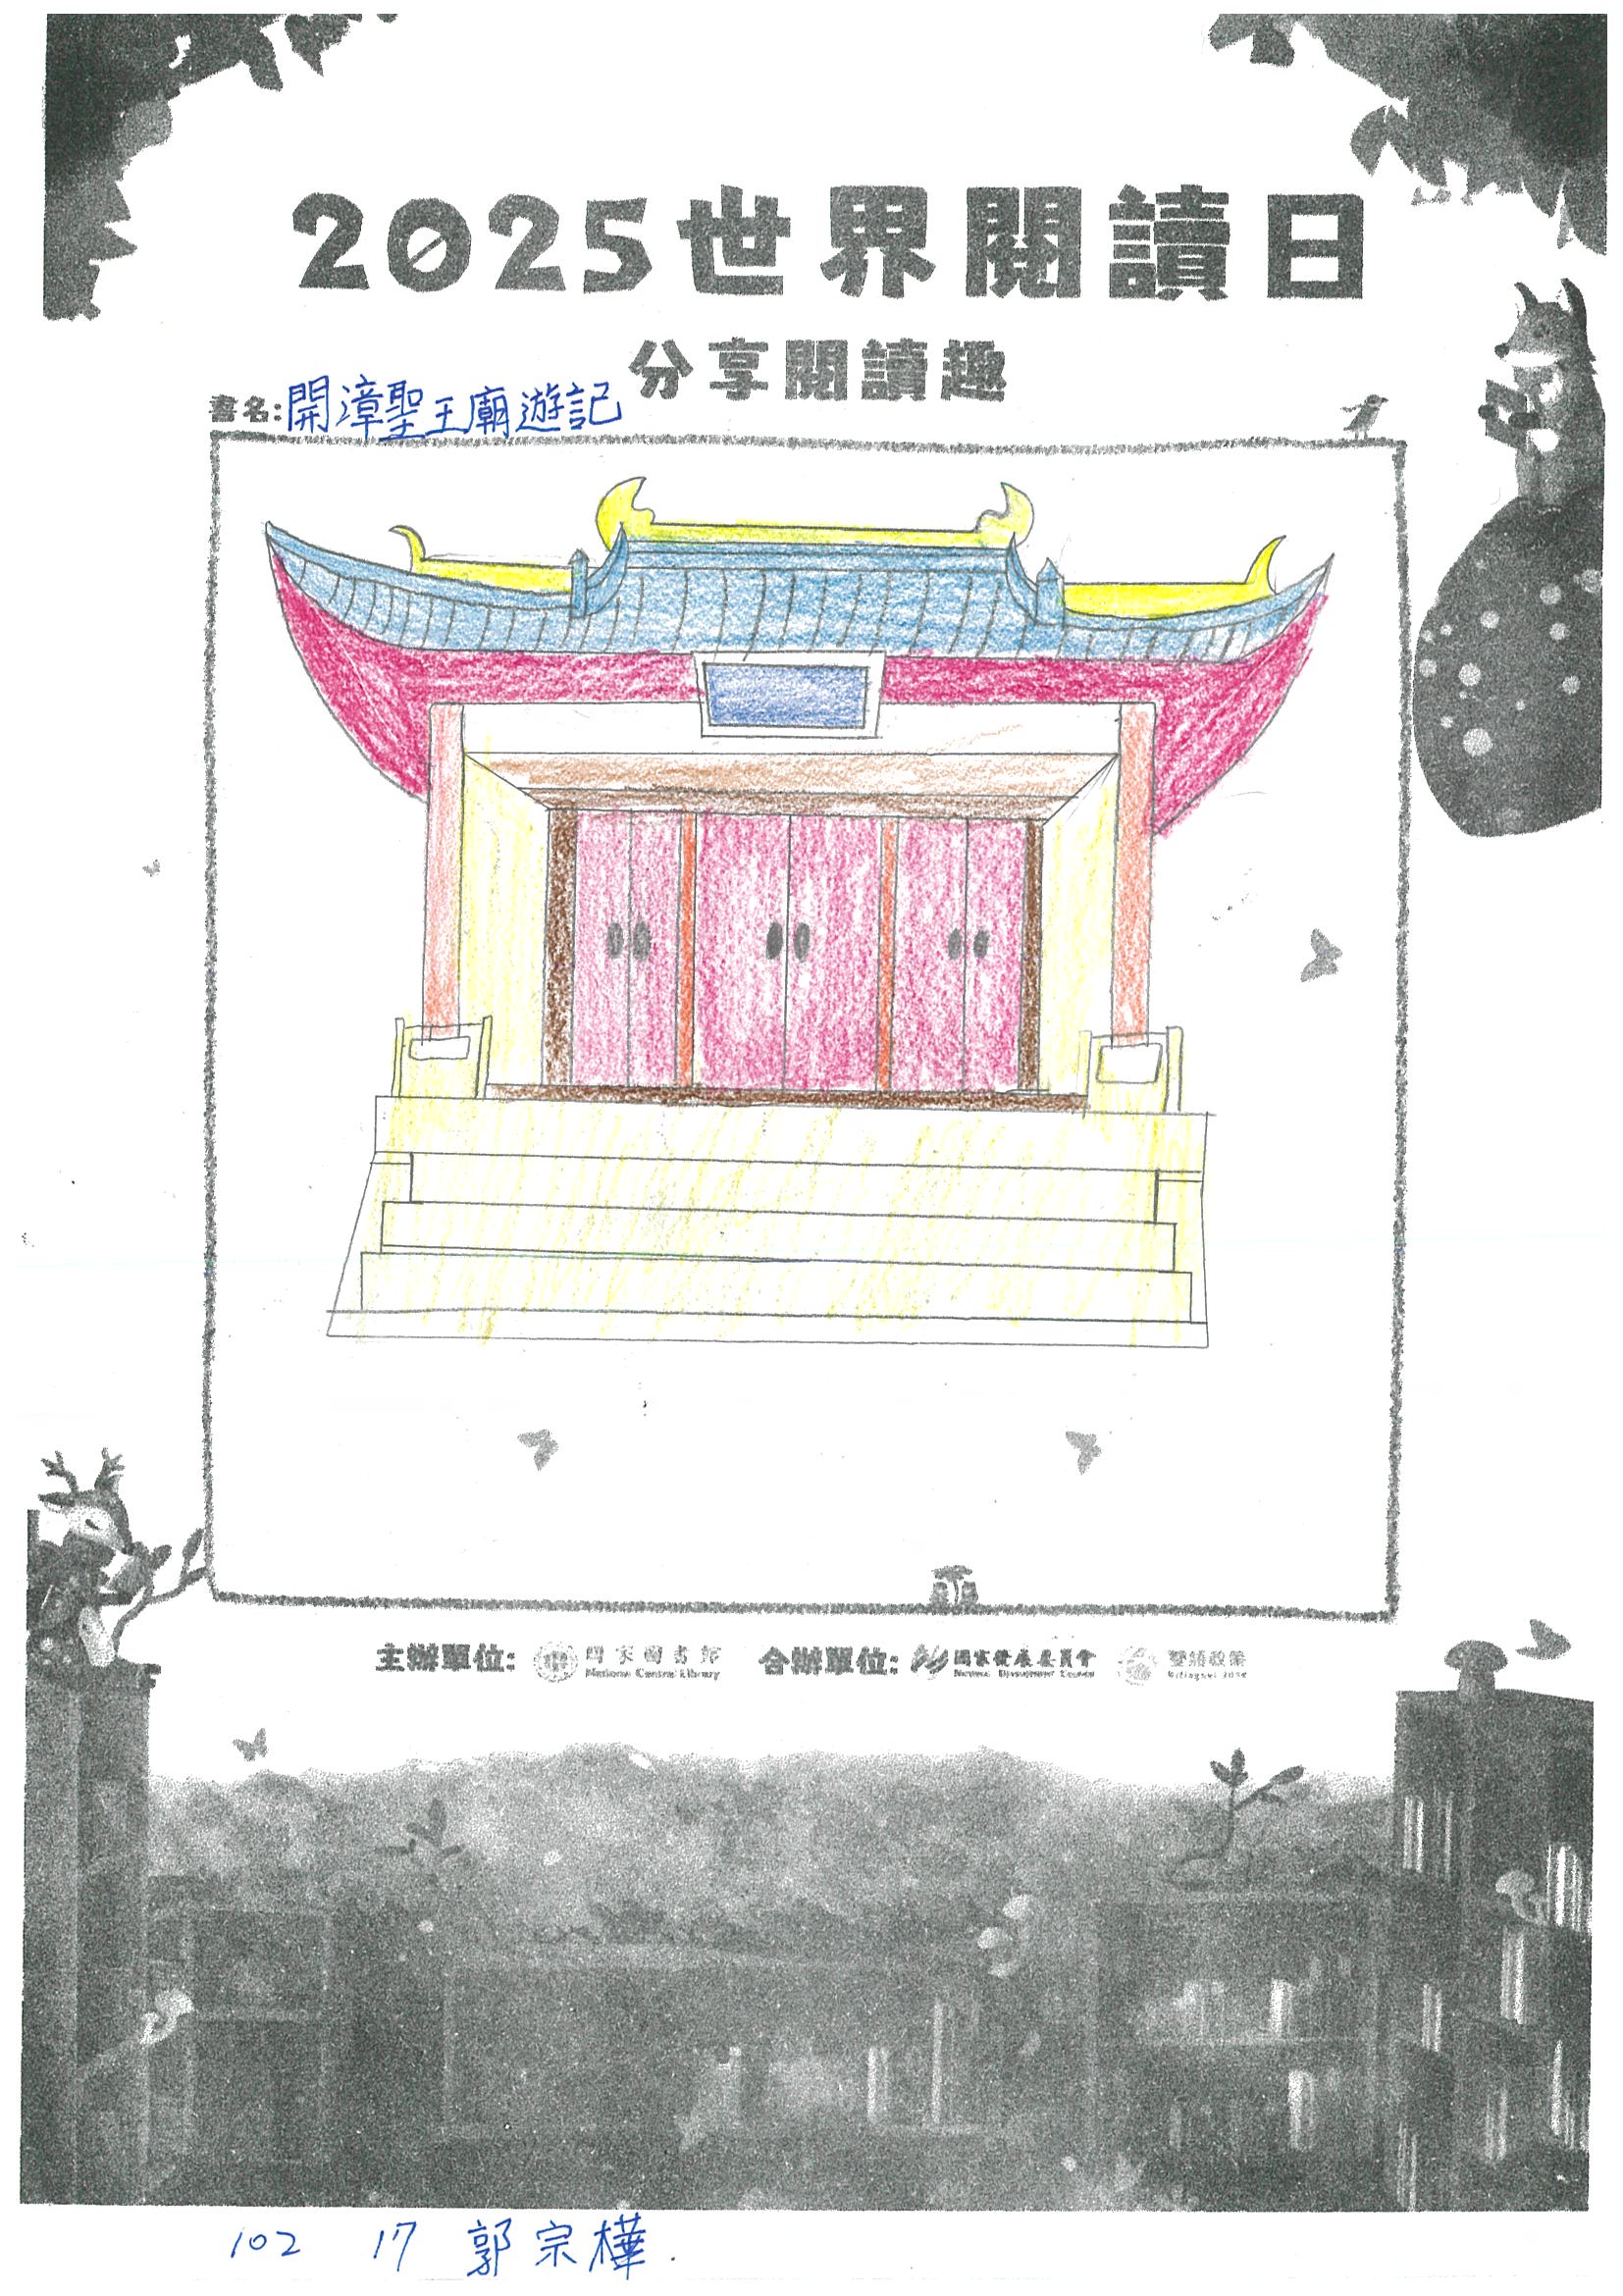 2025世界閱讀日
分享閱讀趣
書名:開漳聖王廟遊記
主辦單位: 國家圖書館 National Central Library 合辦單位: 國家發展委員會 National Development Council 雙語政策 Bilingual 2030
102 17 郭宗樺